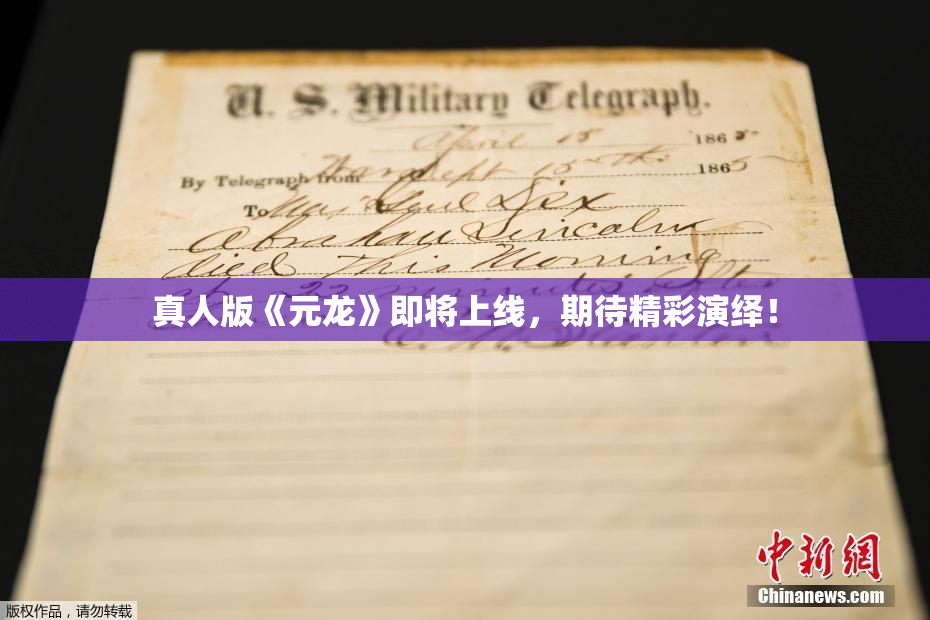 U. S. Military Telegraph.
April 15 1865
By Telegraph from War Dept 15th 1865
To Maj Genl Dix
Abraham Lincoln
died This Morning
at 22 minutes after
真人版《元龙》即将上线，期待精彩演绎！
E. M. Stanton
中新网
Chinanews.com
版权作品，请勿转载